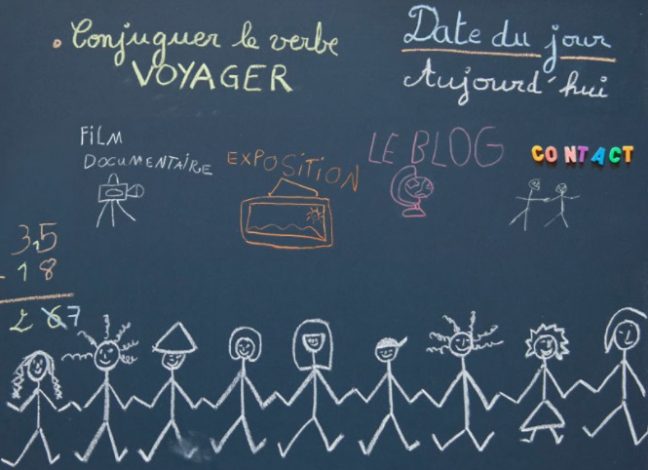 Conjuguer le verbe
VOYAGER
Date du jour
Aujourd'hui
FiLM
DOCUMENTAIRE
EXPOSITION
LE BLOG
CONTACT
35
- 18
267